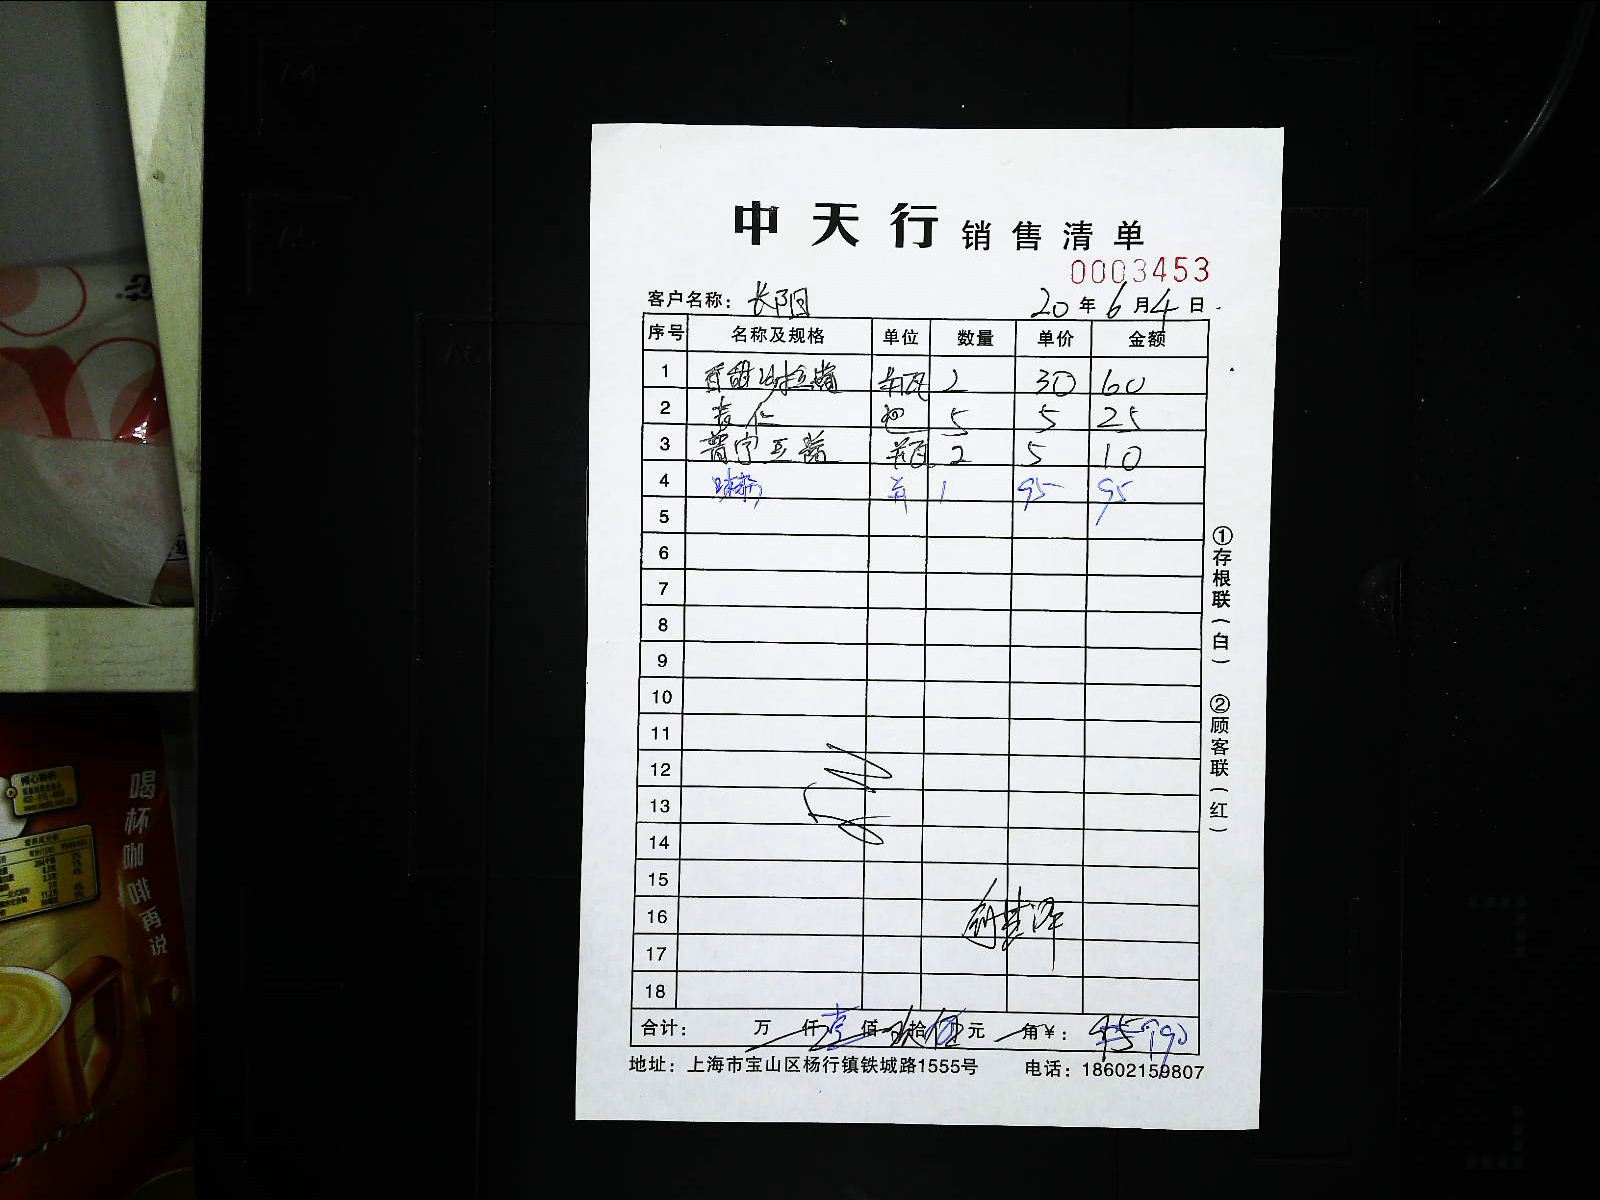 中天行 销售清单
0003453
客户名称: 长阳 20年6月4日
序号 名称及规格 单位 数量 单价 金额
1 瓶 2 30 60
2 麦仁 包 5 5 25
3 普宁豆酱 瓶 2 5 10
4 1 95 95
5
6
7
8
9
10
11
12
13
14
15
16
17
18
合计: 万 仟壹佰 拾 元 角¥: 95 190
地址: 上海市宝山区杨行镇铁城路1555号 电话: 18602159807
①存根联(白) ②顾客联(红)
喝杯咖啡再说